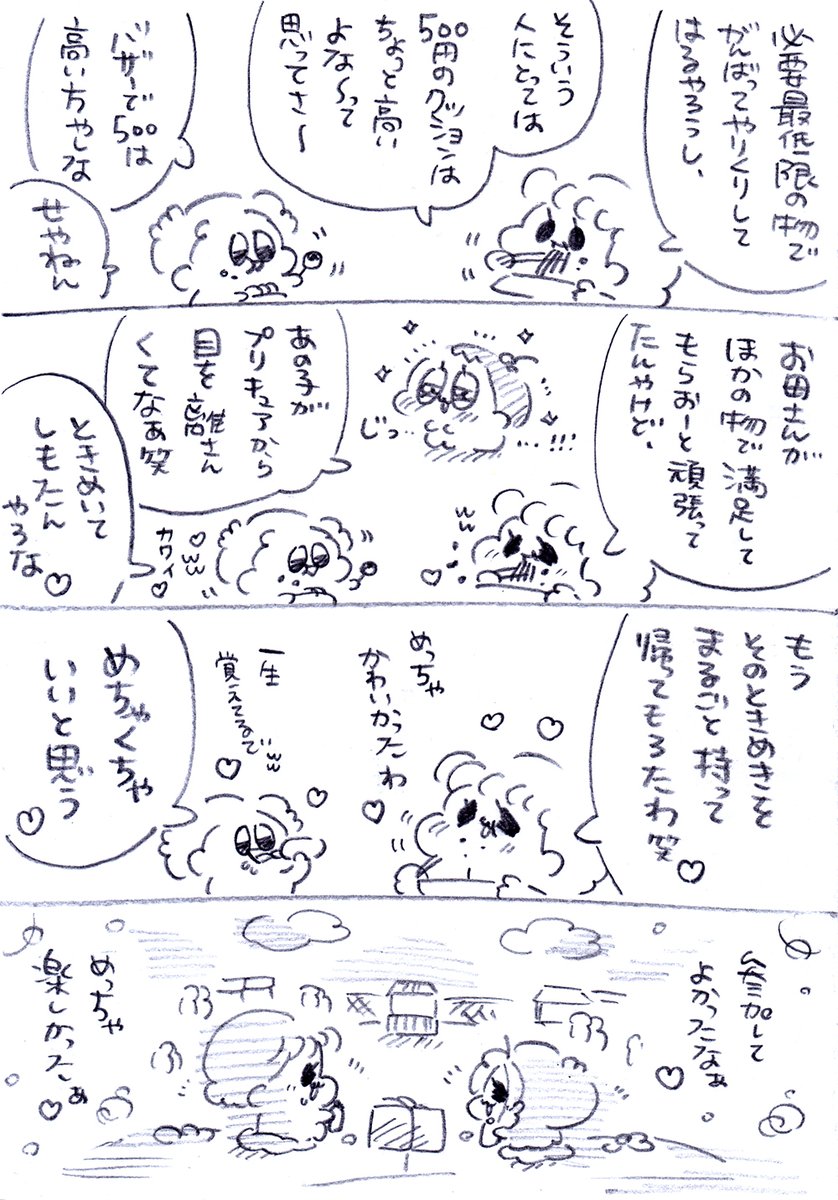 必要最低限の物で
がんばってやりくりして
はるやろうし、
そういう
人にとっては
500円のクッションは
ちょっと高い
よな〜って
思ってさ〜
バザーで500は
高い方やしな
せやねん
お母さんが
ほかの物で満足して
もらおーと頑張って
たんやけど、
じっ…
…!!!
あの子が
プリキュアから
目を離さん
くてなぁ笑
ときめいて
しもたん
やろな♡
カワイ♡
もう
そのときめきを
まるごと持って
帰ってもろたわ笑♡
めっちゃ
かわいかったわ♡
一生
覚えてるでww♡
めちゃくちゃ
いいと思う♡
参加して
よかったなぁ♡
めっちゃ
楽しかったぁ♡